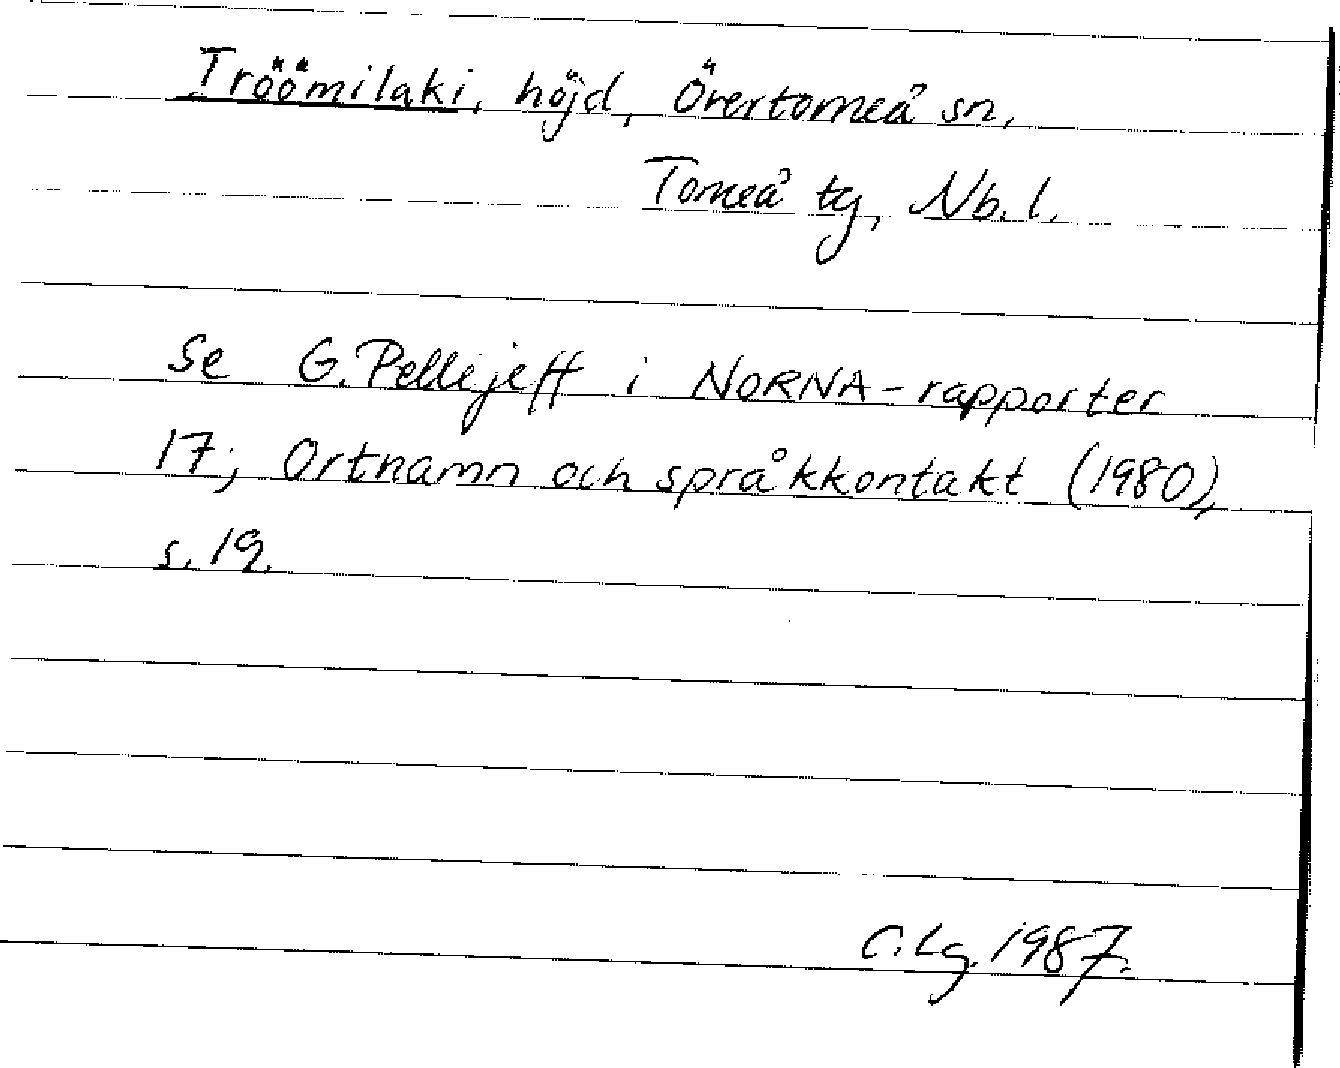 Tröömilaki, höjd, Övertorneå sn,
Torneå tg, Nb. l.
Se G. Pellijeff i NORNA-rapporter
17; Ortnamn och språkkontakt (1980),
s. 19.
C. Lg. 1987.